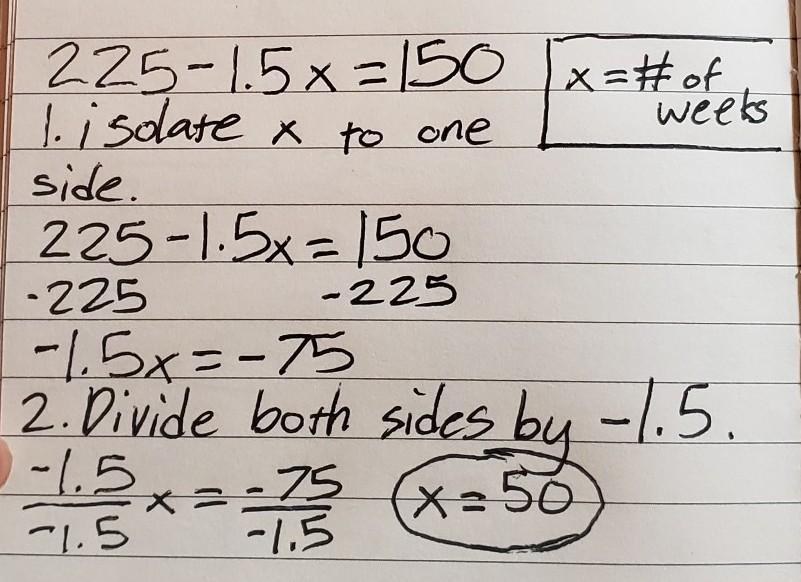 225-1.5x=150
x=# of
weeks
1. isolate x to one
side.
225-1.5x=150
-225 -225
-1.5x=-75
2. Divide both sides by -1.5.
-1.5/-1.5 x = -75/-1.5 x=50